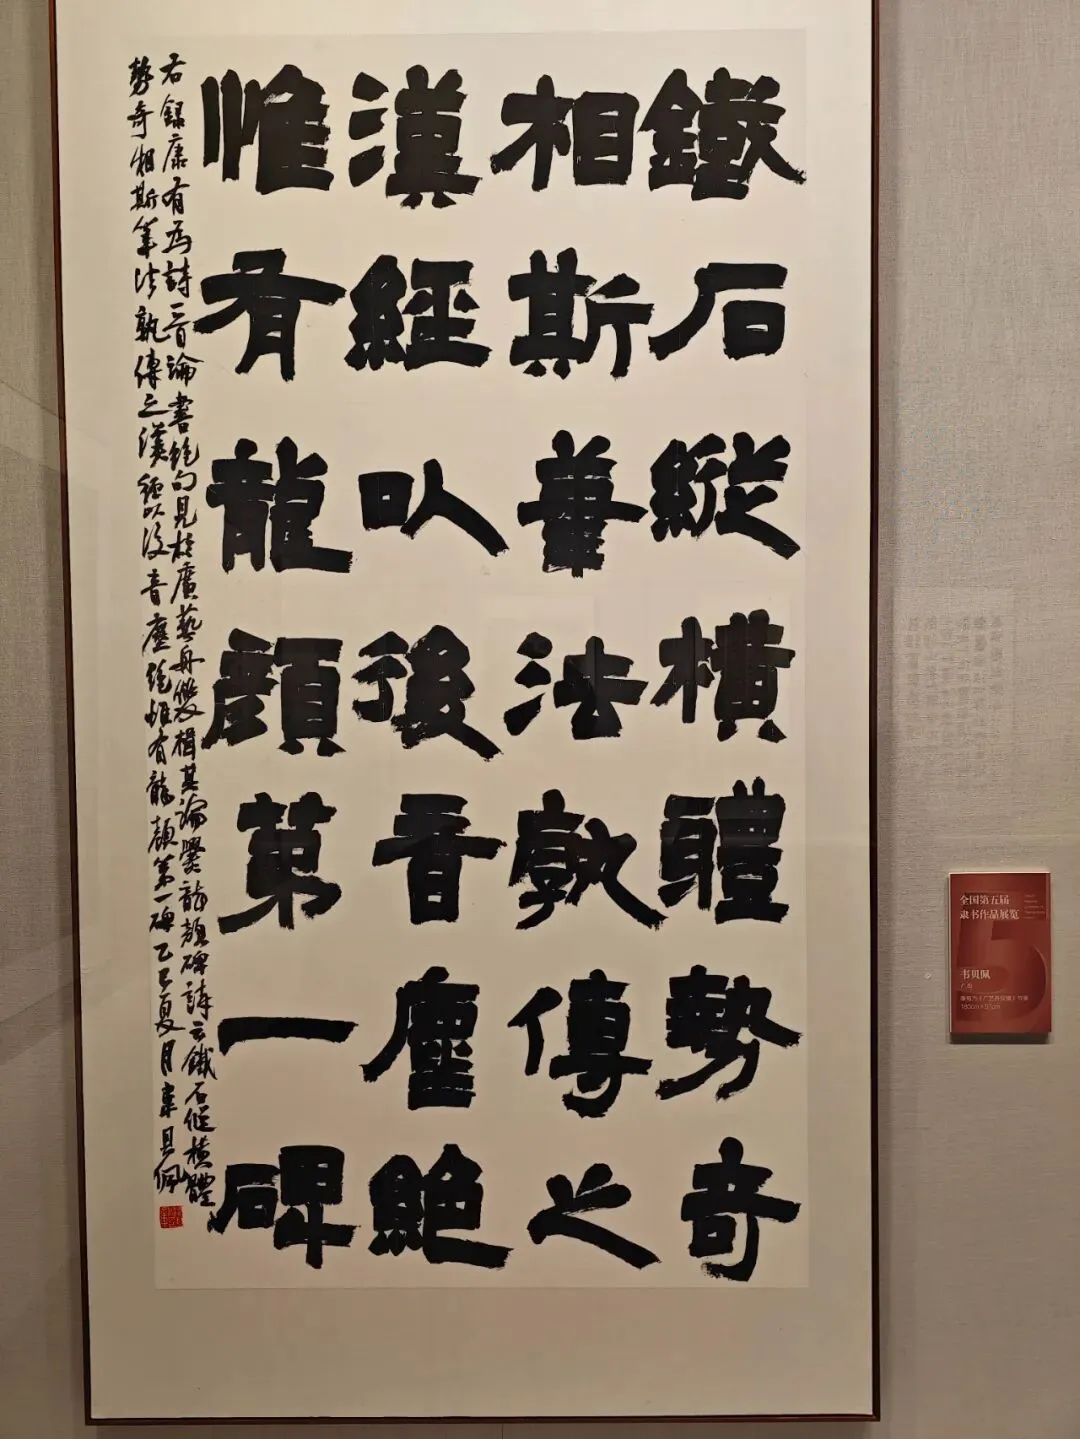 鐵石縱橫體勢奇
相斯筆法孰傳之
漢經以後音塵絕
惟有龍顏第一碑
右録康有為詩一首論書絶句見於廣藝舟雙楫其論爨龍顏碑詩云鐵石縱橫體
勢奇相斯筆法孰傳之漢經以後音塵絶惟有龍顏第一碑乙巳夏月韋貝佩
全国第五届
隶书作品展览
韦贝佩